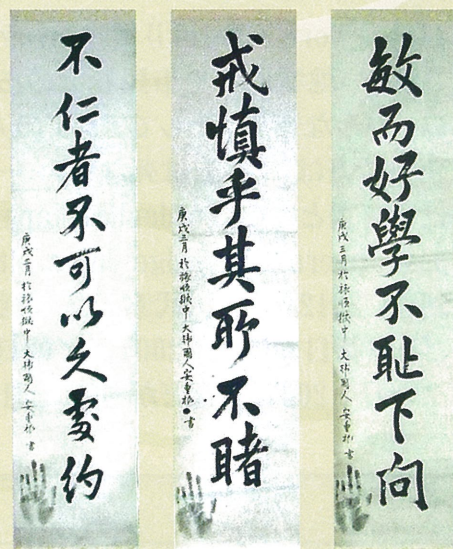 敏而好學不耻下問
庚戌三月 於旅順獄中 大韓國人 安重根 書
戒慎乎其所不睹
庚戌三月 於旅順獄中 大韓國人 安重根 書
不仁者不可以久處約
庚戌三月 於旅順獄中 大韓國人 安重根 書